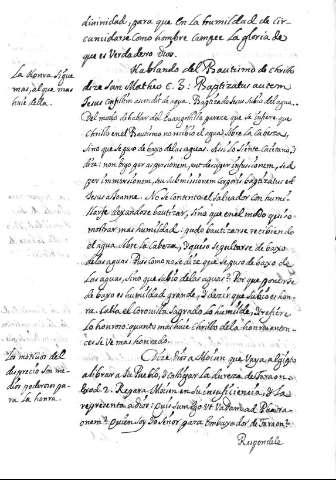 divinidade, para que en la humildad de Cir-
cuncidarse como hombre campee la gloria de
que es Verdadero Dios.
La honra sigue
mas, al que mas
huie della.
Hablando del Bautismo de Christo
dize San Matheo C. 3: Baptizatus autem
Jesus confestim ascendit de aqua. Bagtizado Jesus subio del agua.
Del modo de hablar del Evangelista parece que se infiere, que
Christo en el Bautismo no recibio el agua sobre la Cabeza,
sino que se puso de baxo de las aguas. Asi lo siente Caietano, q
dize: non ergo per aspersionem, aut de super infusionem, sed
per inmersionem, seu submissionem corporis baptizatus est
Jesus a Joanne. No se contento el Salvador con humi-
llarse dexandose bautizar, sino que en el modo quiso
mostrar mas humildad: pudo bautizarse recibiendo
el agua sobre la Cabeza, y quiso sepultarse de baxo
de las aguas. Pues como no se dize que se puso de baxo de
las aguas, sino que subio de las aguas? Por que ponerse
de baxo es humildad grande, y dezir que subio es hon-
ra. Calla el Coronista Sagrado lo humilde, y refiere
lo honroso: quanto mas huie Christo de la honra enton-
ces se ve mas honrado.
Los motivos del
desprecio son me-
dios poderosos pa-
ra la honra.
Dize Dios a Moisen que vaya a Egipto
a librar a su Pueblo, y castigar la dureza de Faraon.
Exod. 2. Repara Moisen en su insuficiencia, y le
representa a Dios: Quis sum ego ut vadam ad Phara-
onem? quien soy yo Señor para Embaxador de Faraon?
Respondele